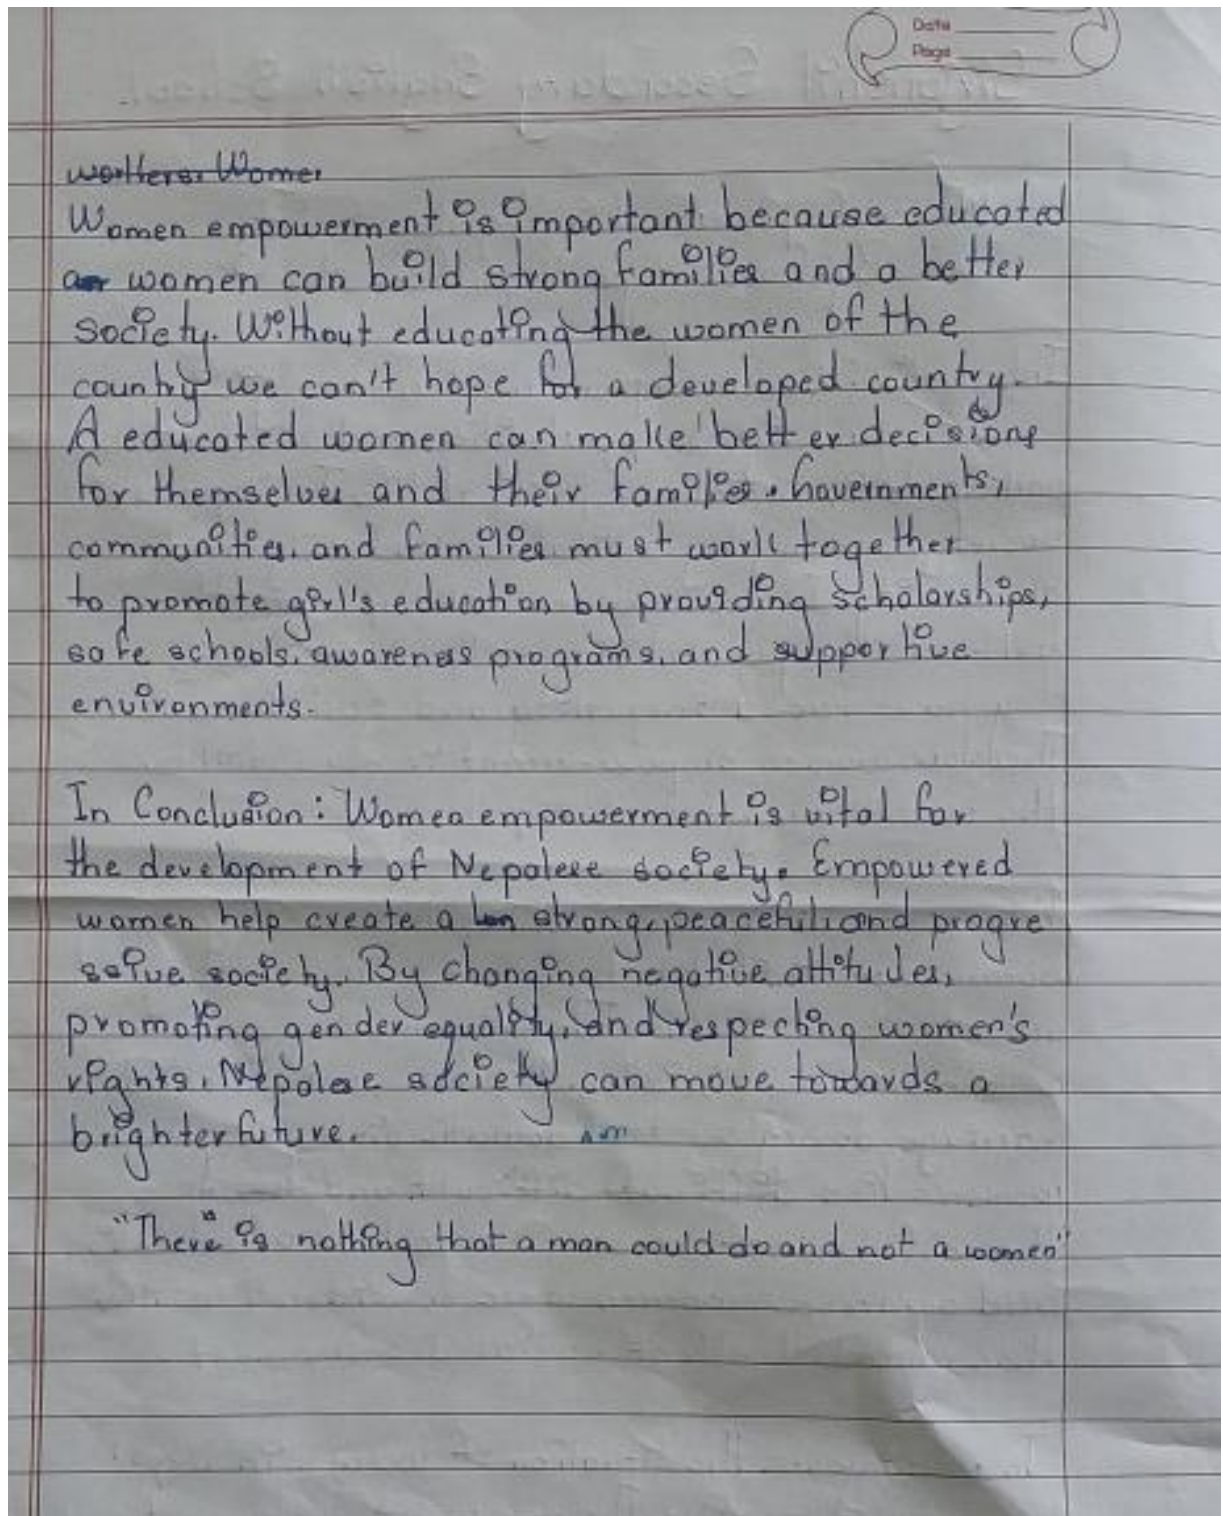 Date
Page
Women empowerment is important because educated
women can build strong families and a better
society. Without educating the women of the
country we can't hope for a developed country.
A educated women can make better decisions
for themselves and their families. Governments,
communities, and families must work together
to promote girl's education by providing scholarships,
safe schools, awareness programs, and supportive
environments.
In Conclusion: Women empowerment is vital for
the development of Nepalese society. Empowered
women help create a strong, peaceful, and progre
ssive society. By changing negative attitudes,
promoting gender equality, and respecting women's
rights, Nepalese society can move towards a
brighter future.
"There is nothing that a man could do and not a women"